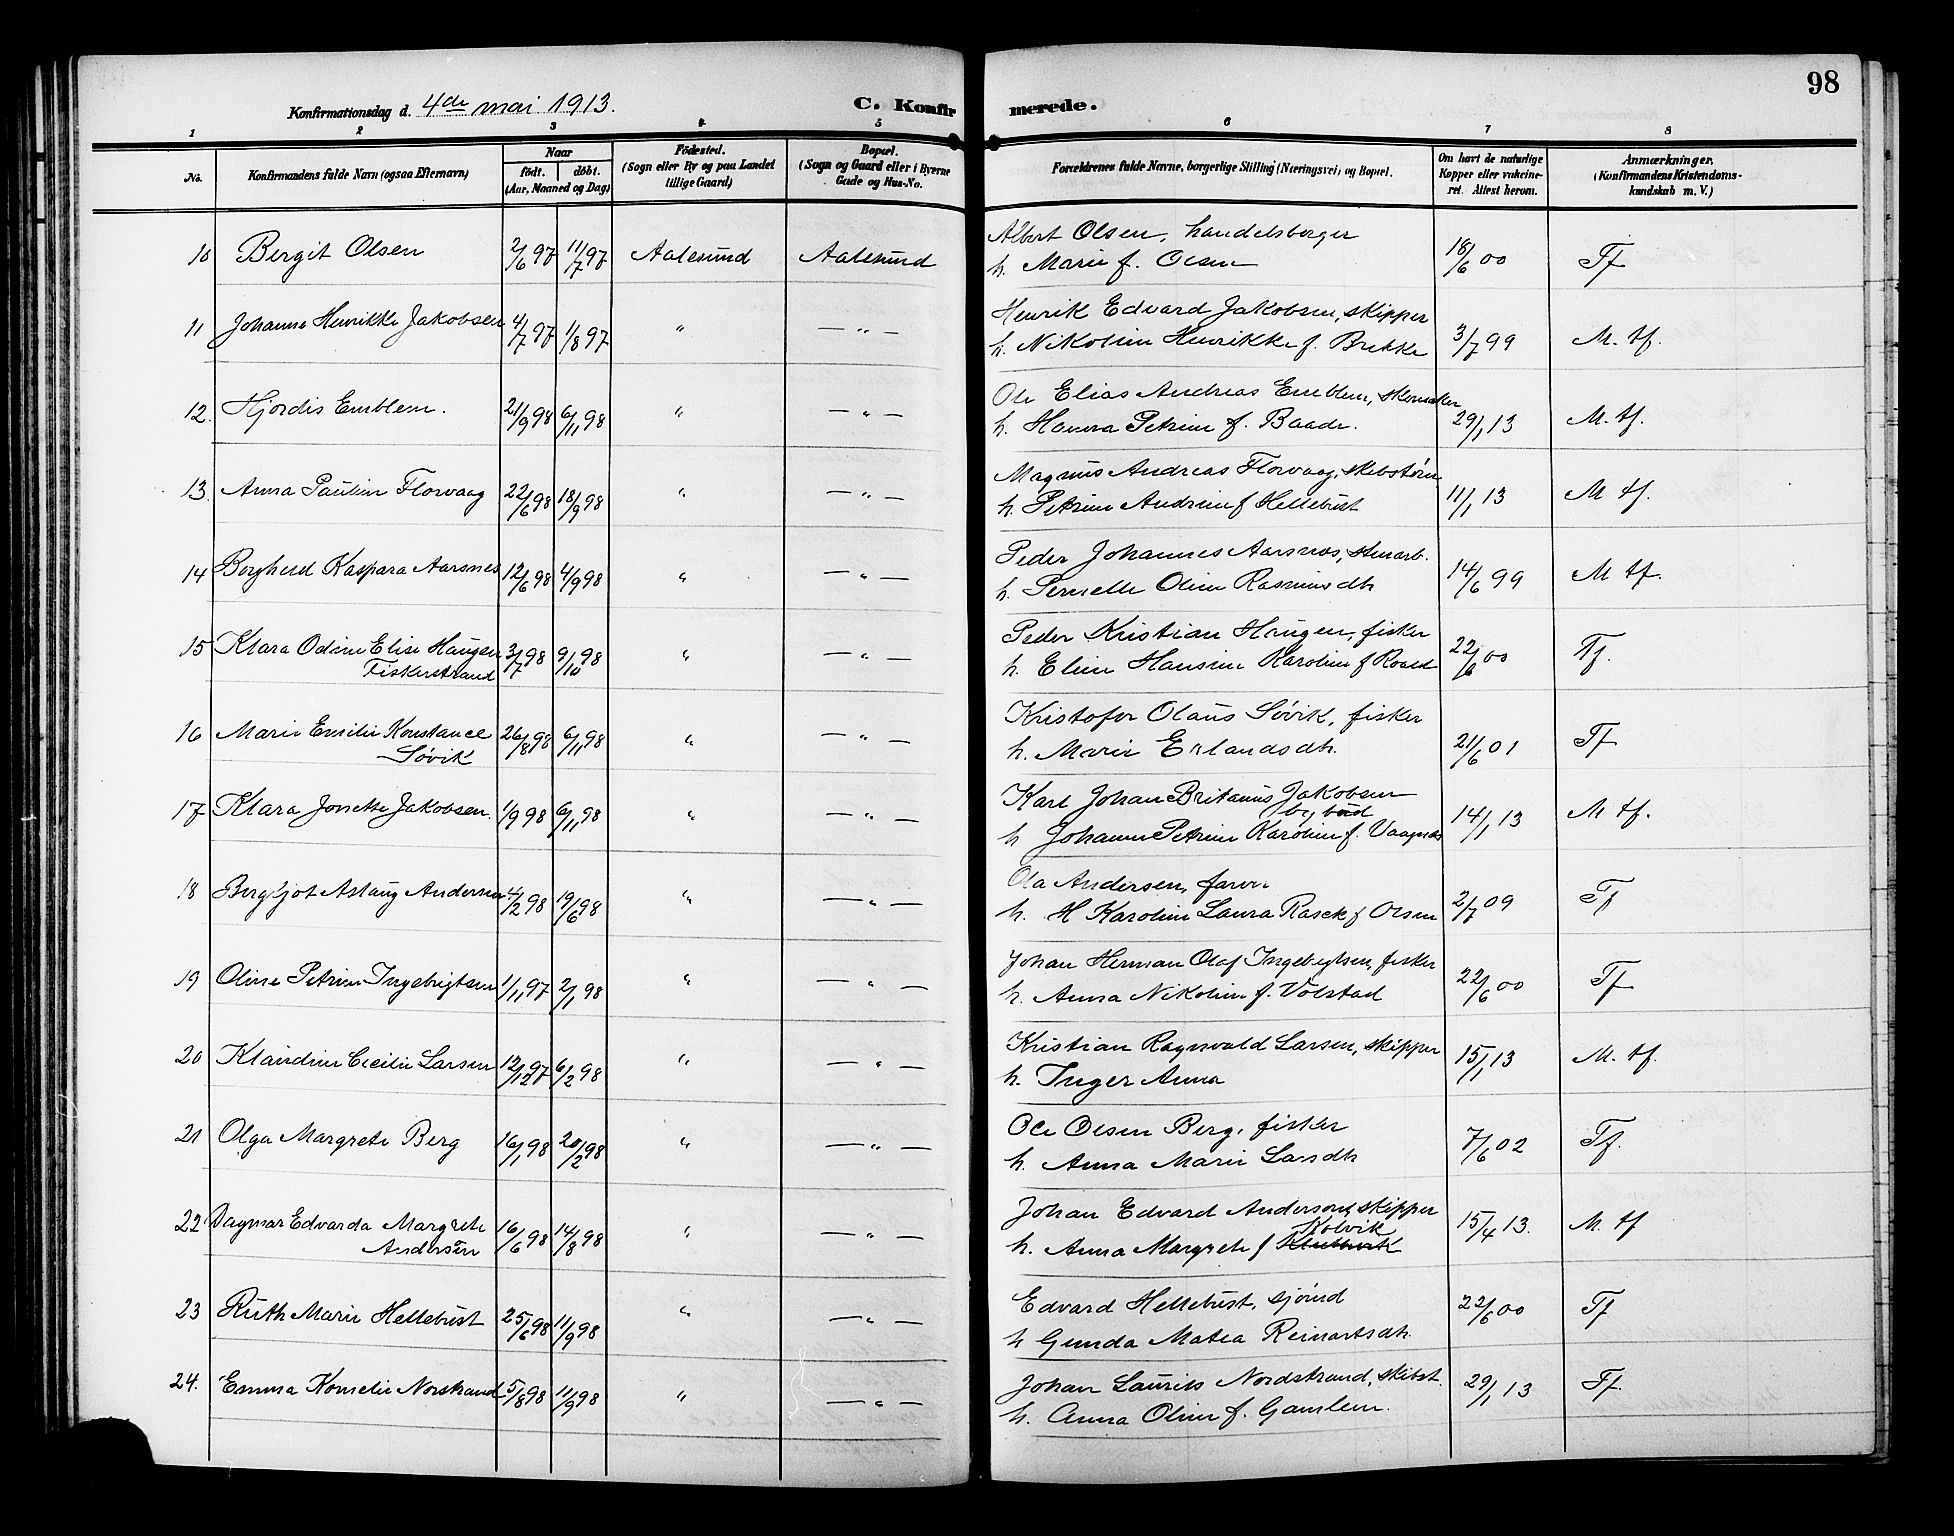 98
Konfirmationsdag d. 4de mai 1913.
C. Konfirmerede.
1 2 3 4 5 6 7 8
No.
Konfirmandens fulde Navn (ogsaa Efternavn)
Naar
født. døbt.
(Aar, Maaned og Dag)
Fødested.
(Sogn eller By og paa Landet
tillige Gaard)
Bopæl.
(Sogn og Gaard eller i Byerne
Gade og Hus-No.
Forældrenes fulde Navne, borgerlige Stilling (Næringsvei) og Bopæl.
Om havt de naturlige
Kopper eller vakcine-
ret. Attest herom.
Anmærkninger,
(Konfirmandens Kristendoms-
kundskab m. V.)
10 Bergit Olsen 2/6 97 11/7 97 Aalesund Aalesund
Albert Olsen, handelsborger
h. Marie f. Olsen 18/6 00 Tf
11 Johanne Henrikke Jakobsen 4/7 97 1/8 97 " — " —
Henrik Edvard Jakobsen, skipper
h. Nikoline Henrikke f. Brekke 3/7 99 M. tf.
12. Hjordis Emblem. 21/9 98 6/11 98 " — " —
Ole Elias Andreas Emblem, skomaker
h. Hanna Petrine f. Baade. 29/1 13 M. tf.
13. Anna Pauline Florvaag 22/6 98 18/9 98 " — " —
Magnus Andreas Florvaag, skibstøm
h. Petrine Andrine f Hellebust 11/1 13 M tf.
14 Borghild Kaspara Aarsnes 12/6 98 4/9 98 " — " —
Peder Johannes Aarsnes, stenarb.
h. Pernelle Oline Rasmusdtr 14/6 99 M tf.
15 Klara Odine Elise Haugen 3/7 98 9/10 98 " — " —
Fiskerstrand
Peder Kristian Haugen, fisker
h. Eline Hansine Karoline f Roald 22/6 00 Tf.
16 Marie Emilie Konstance 26/8 98 6/11 98 " — " —
Søvik
Kristofer Olaus Søvik, fisker
h. Marie Erlandsdtr. 21/6 01 Tf
17 Klara Jonette Jakobsen. 1/9 98 6/11 98 " — " —
Karl Johan Britanus Jakobsen
bybud
h Johanne Petrine Karoline f. Vaagnæs 14/1 13 M tf.
18 Bergljot Aslaug Andersen 4/2 98 19/6 98 " — " —
Ola Andersen, farver
h. H Karoline Laura Rasck f Olsen 2/7 09 Tf
19 Oline Petrine Ingebrigtsen 1/11 97 2/1 98 " — " —
Johan Herman Olaf Ingebrigtsen, fisker
h. Anna Nikoline f. Volstad 22/6 00 Tf
20 Klaudine Cecilie Larsen 12/12 97 6/2 98 " — " —
Kristian Ragnvald Larsen, skipper
h. Inger Anna 15/1 13 M. tf.
21 Olga Margrete Berg 16/1 98 20/2 98 " — " —
Ole Olsen Berg, fisker
h. Anna Marie Larsdtr 7/6 02 Tf.
22 Dagmar Edvarda Margrete 16/6 98 14/8 98 " — " —
Andersen
Johan Edvard Andersen, skipper
Kolvik
h. Anna Margrete f 15/4 13. M. tf
23 Ruth Marie Hellebust 25/6 98 11/9 98 " — " —
Edvard Hellebust, sjømd
h Gunda Matea Reinartsdtr. 22/6 00 Tf
24. Emma Kornelie Norstrand 5/8 98 11/9 98 " — " —
Johan Laurits Nordstrand, skibst.
h. Anna Oline f. Gamlem. 29/1 13 Tf.